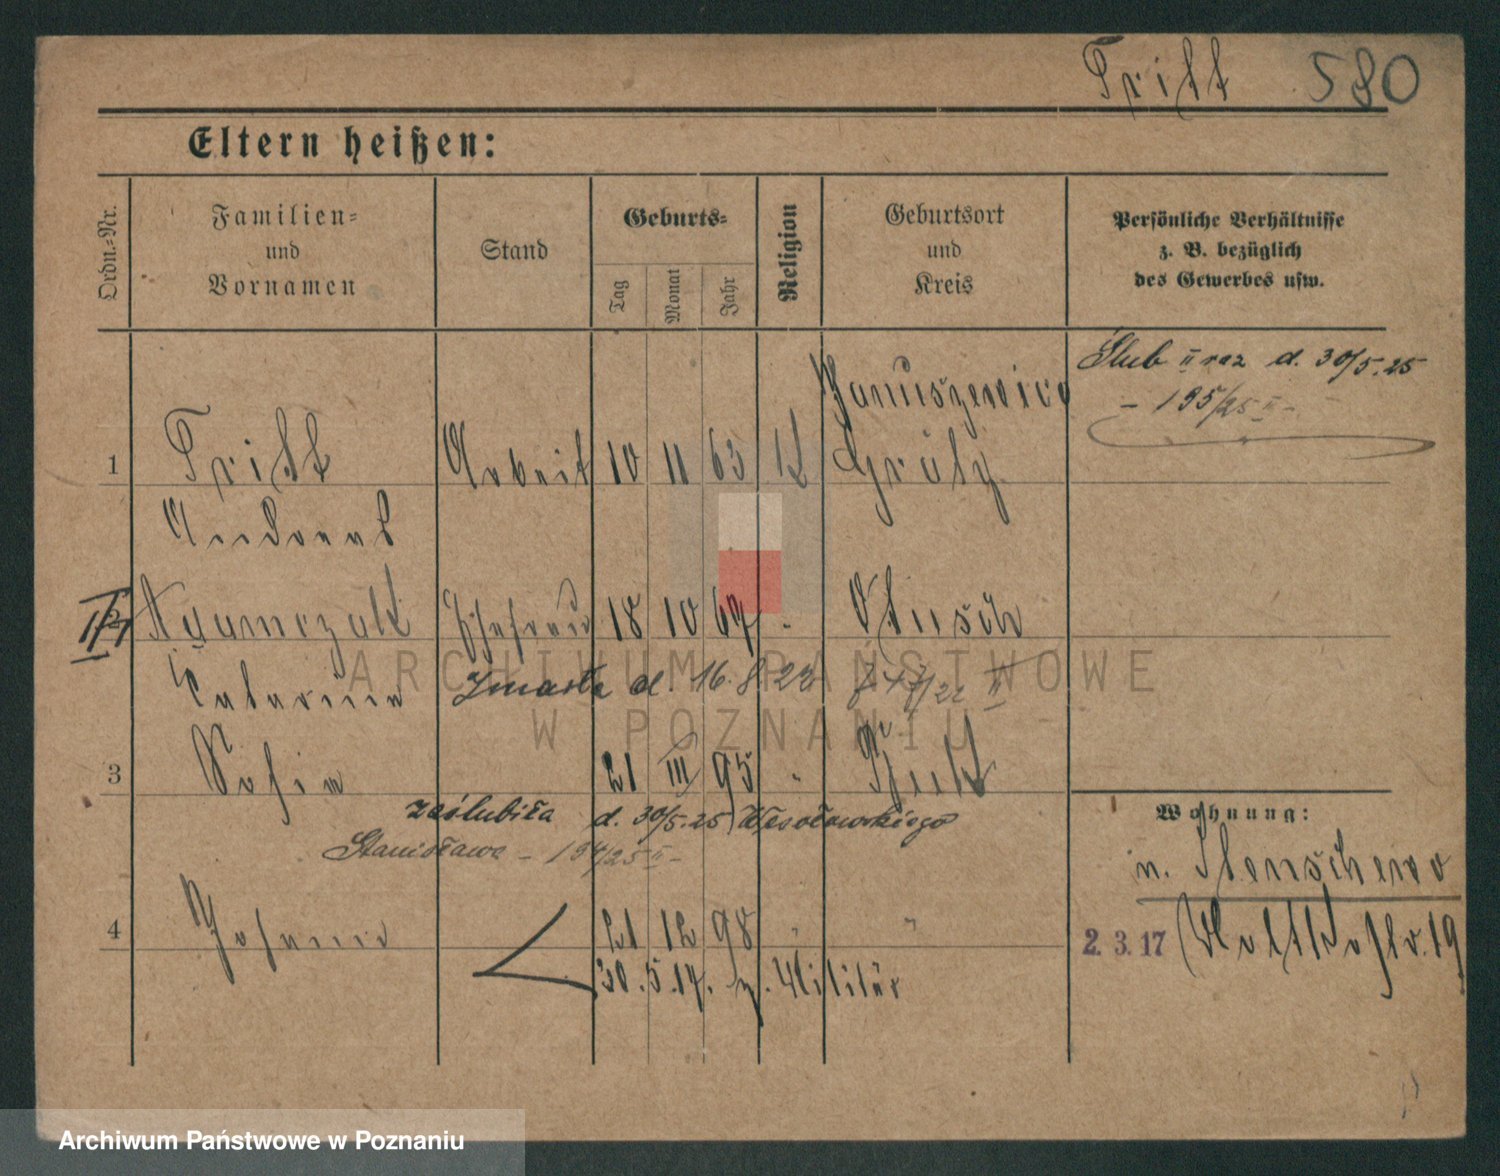 Tritt 580
Eltern heißen:
Ordn.-Nr.
Familien-
und
Vornamen
Stand
Geburts-
Tag
Monat
Jahr
Religion
Geburtsort
und
Kreis
Persönliche Verhältnisse
z. B. bezüglich
des Gewerbes usw.
Ślub II raz d. 30/5.25
- 195/25 II -
Januszewice
1 Tritt Arbeit 10 11 63 K Grätz
Andreas
2 Adamczak Ehefrau 18 10 67 Otusch
Catarina zmarła d. 16.8.22
3 Sofia 21 III 95 "
zaślubiła d. 30/5.25 Wesołowskiego
Stanisława - 194/25 II -
Wohnung:
n.
4 Johann 21 12 98 " "
2. 3. 17 19
30.5.17. z. Militär
ARCHIWUM PAŃSTWOWE
W POZNANIU
Archiwum Państwowe w Poznaniu